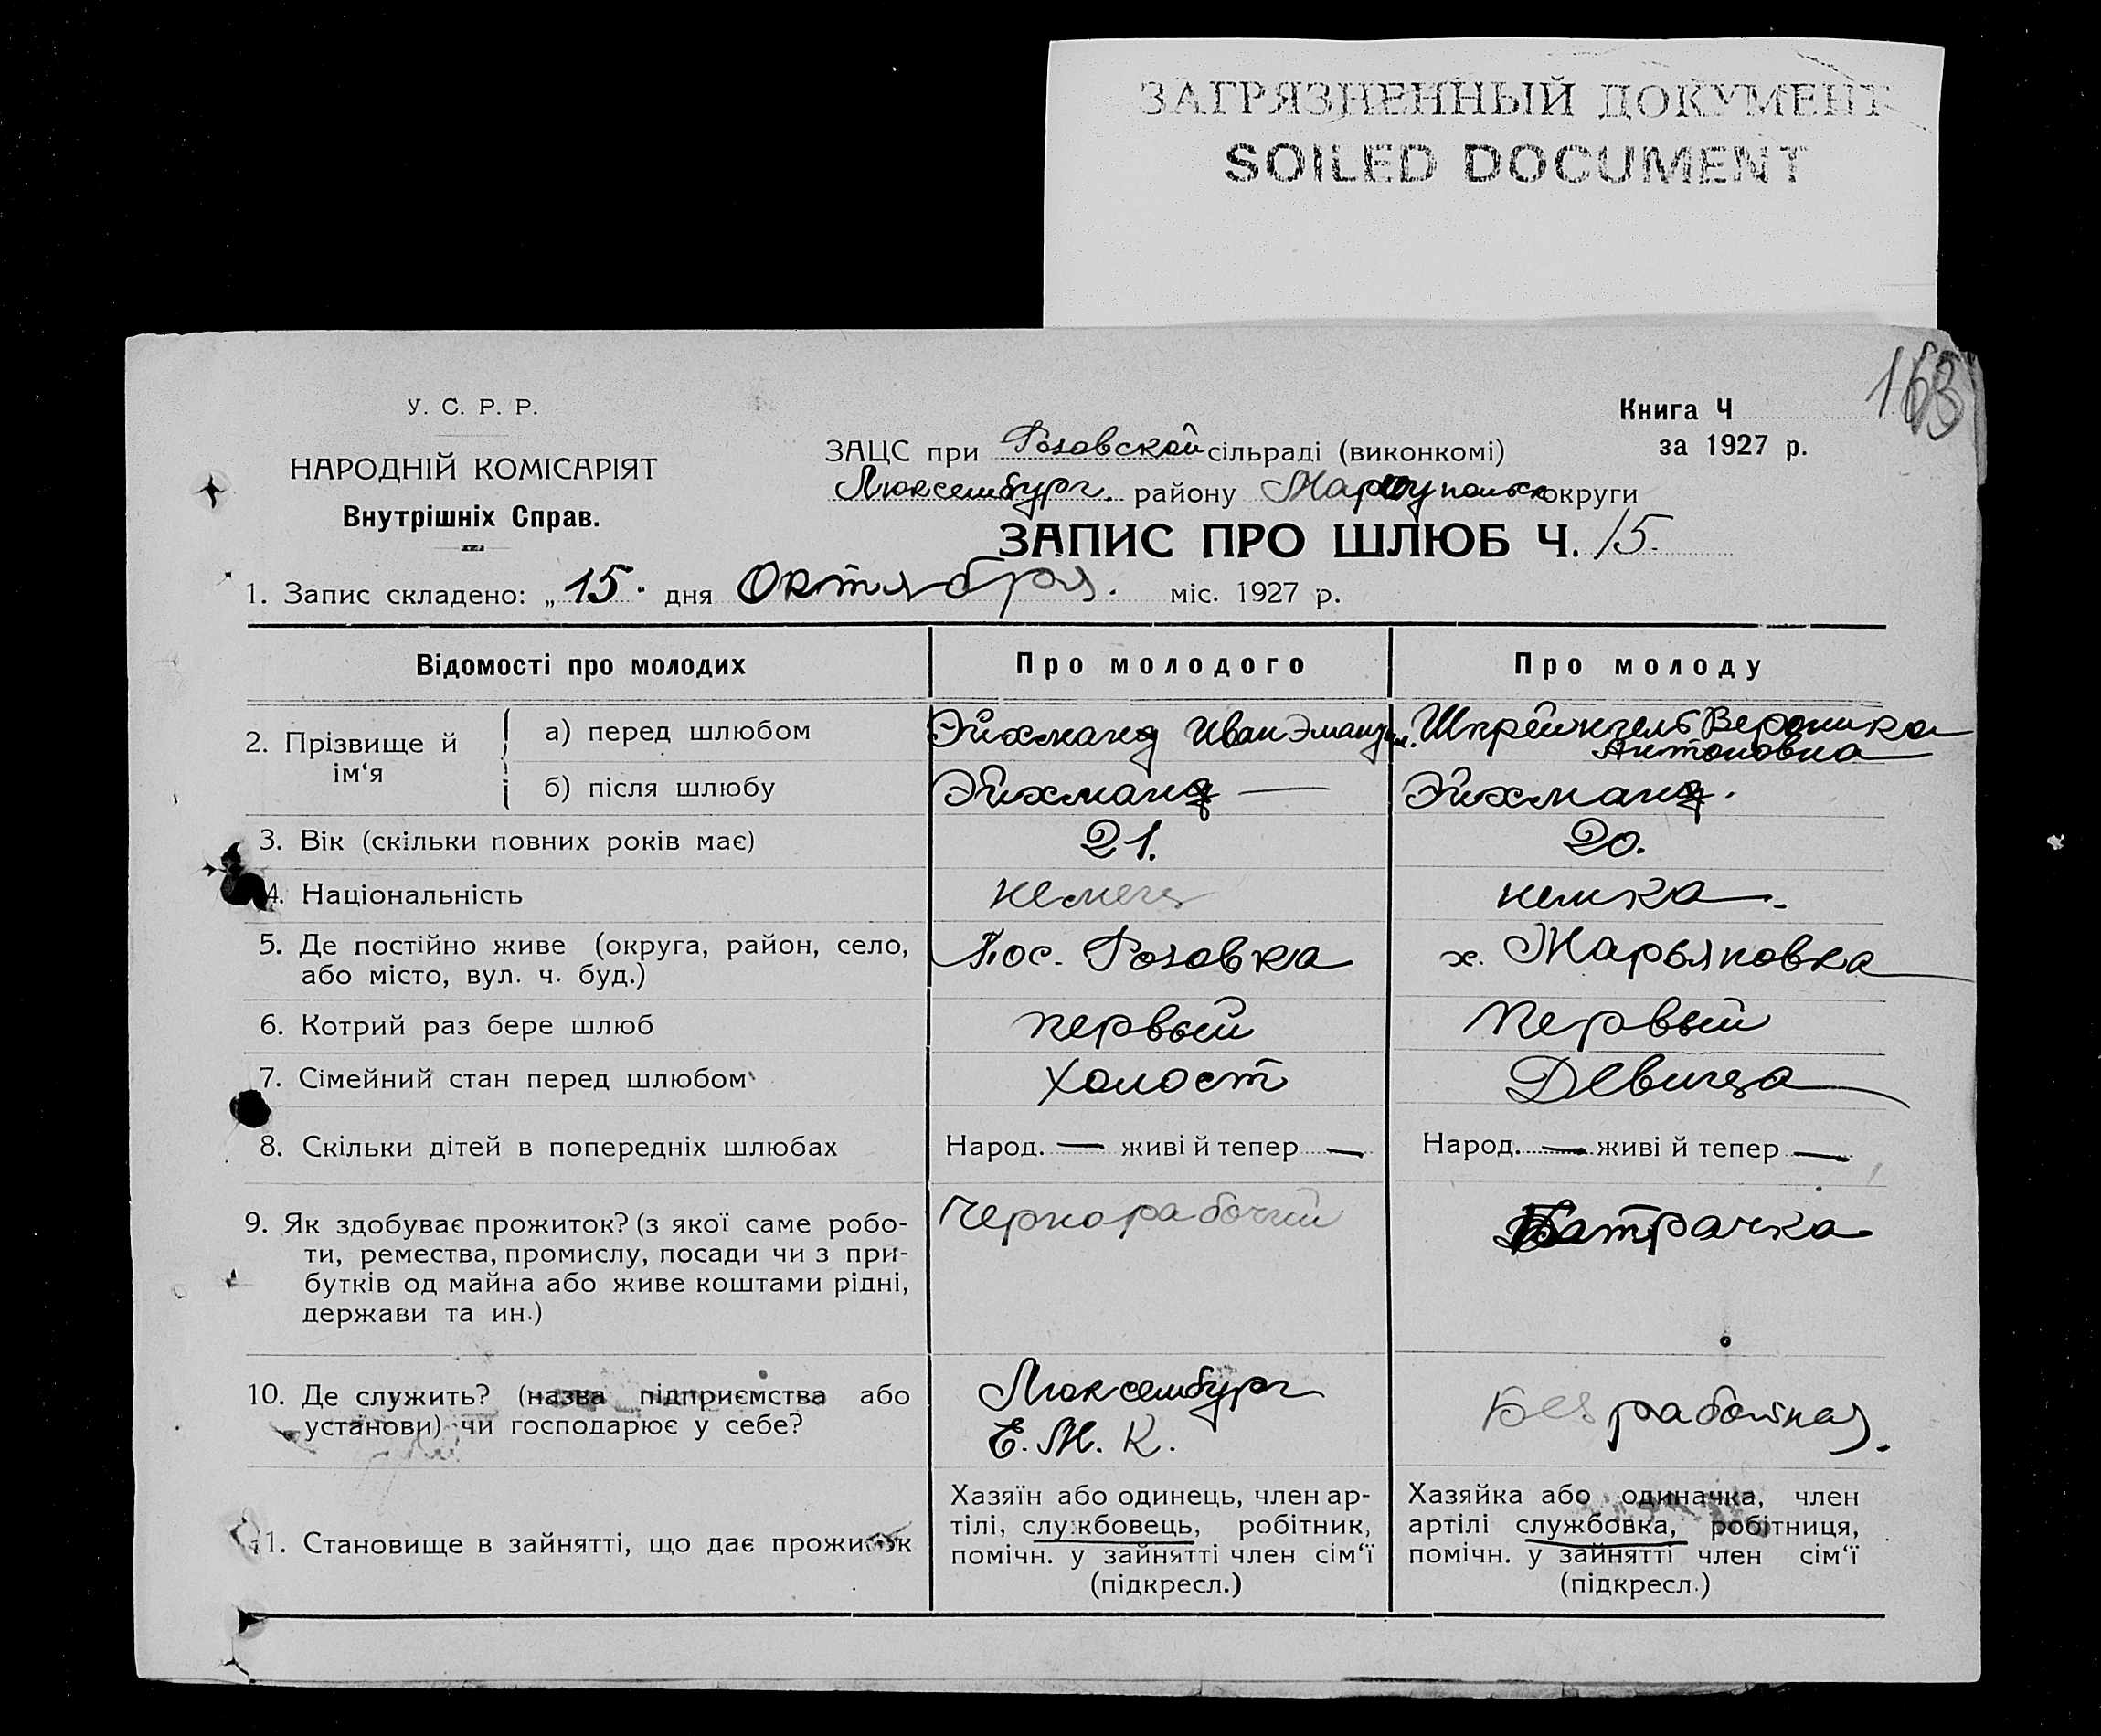 ЗАГРЯЗНЕННЫЙ ДОКУМЕНТ
SOILED DOCUMENT
163
У. С. Р. Р.
НАРОДНІЙ КОМІСАРІЯТ
Внутрішніх Справ.
Книга Ч
за 1927 р.
ЗАЦС при Розовской сільраді (виконкомі)
Люксембург. району Мариупольск округи
ЗАПИС ПРО ШЛЮБ Ч. 15.
1. Запис складено: „15" дня Октября. міс. 1927 р.
Відомості про молодих
Про молодого
Про молоду
2. Прізвище й ім‘я
а) перед шлюбом
Эйхманд Иван Эмануил.
Шпрейнгель Вероника
Антоновна
б) після шлюбу
Эйхманд —
Эйхманд.
3. Вік (скільки повних років має)
21.
20.
4. Національність
немец
немка.
5. Де постійно живе (округа, район, село,
або місто, вул. ч. буд.)
Пос. Розовка
х. Марьяновка
6. Котрий раз бере шлюб
первый
Первый
7. Сімейний стан перед шлюбом
Холост
Девица
8. Скільки дітей в попередніх шлюбах
Народ. — живі й тепер —
Народ. — живі й тепер —
9. Як здобуває прожиток? (з якої саме робо-
ти, ремества, промислу, посади чи з при-
бутків од майна або живе коштами рідні,
держави та ин.)
Чернорабочий
Батрачка
10. Де служить? (назва підприємства або
установи) чи господарює у себе?
Люксембург
Е. М. К.
Безработная.
11. Становище в зайнятті, що дає прожиток
Хазяїн або одинець, член ар-
тілі, службовець, робітник,
помічн. у зайнятті член сім‘ї
(підкресл.)
Хазяйка або одиначка, член
артілі службовка, робітниця,
помічн. у зайнятті член сім‘ї
(підкресл.)